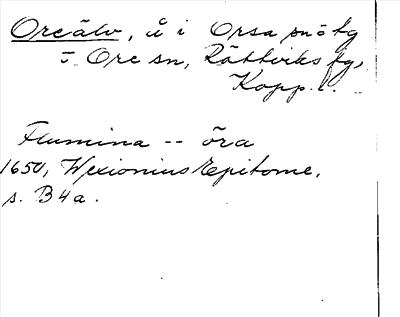 Oreälv, å i Orsa sn o tg
o. Ore sn, Rättviks tg,
Kopp. l.
Flumina -- öra
1650, Wexionius Epitome,
s. B4a.